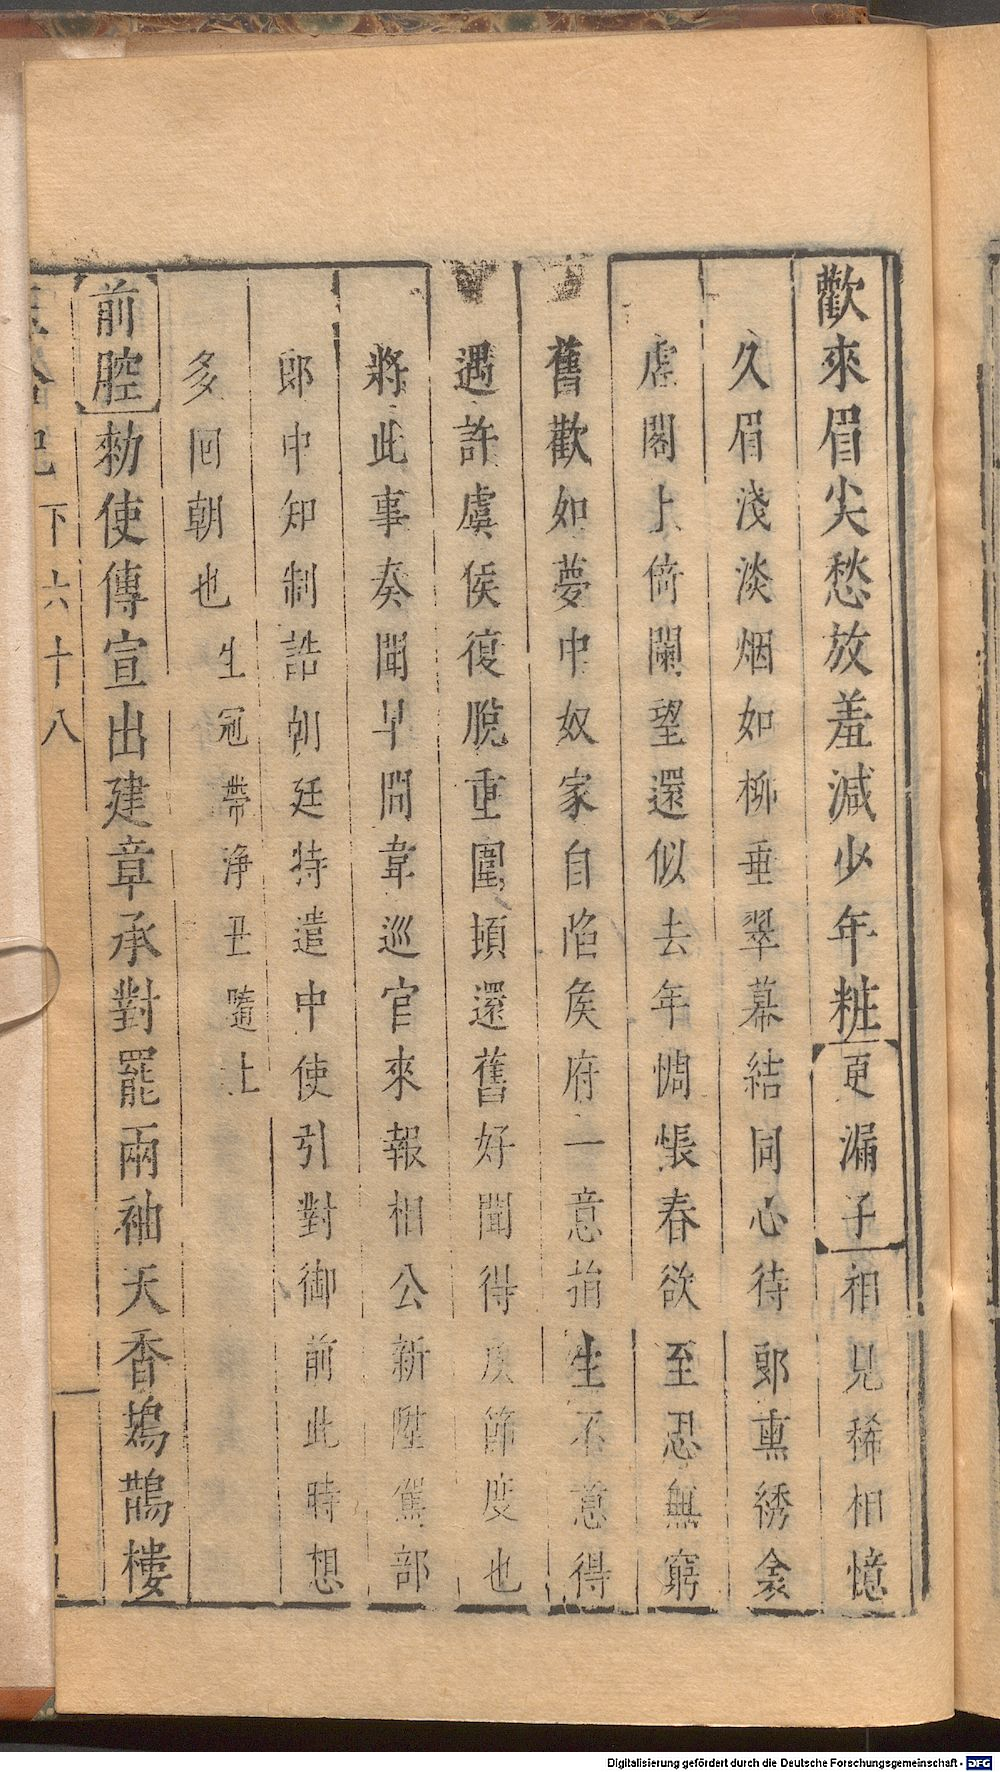 歡來眉尖愁放羞減少年粧【更漏子】相見稀相憶
久眉淺淡烟如柳垂翠幕結同心待郎熏綉衾
虛閣上倚闌望還似去年惆悵春欲至恐無窮
舊歡如夢中奴家自陷矦府一意拍生不意得
遇許虞侯復脫重圍頓還舊好聞得矦節度也
將此事奏聞早間韋巡官來報相公新陞駕部
郎中知制誥朝廷特遣中使引對御前此時想
多回朝也生冠帶淨丑隨上
【前腔】勑使傳宣出建章承對罷兩袖天香鳷鵲樓
玉合記 下六十八
Digitalisierung gefördert durch die Deutsche Forschungsgemeinschaft - DFG